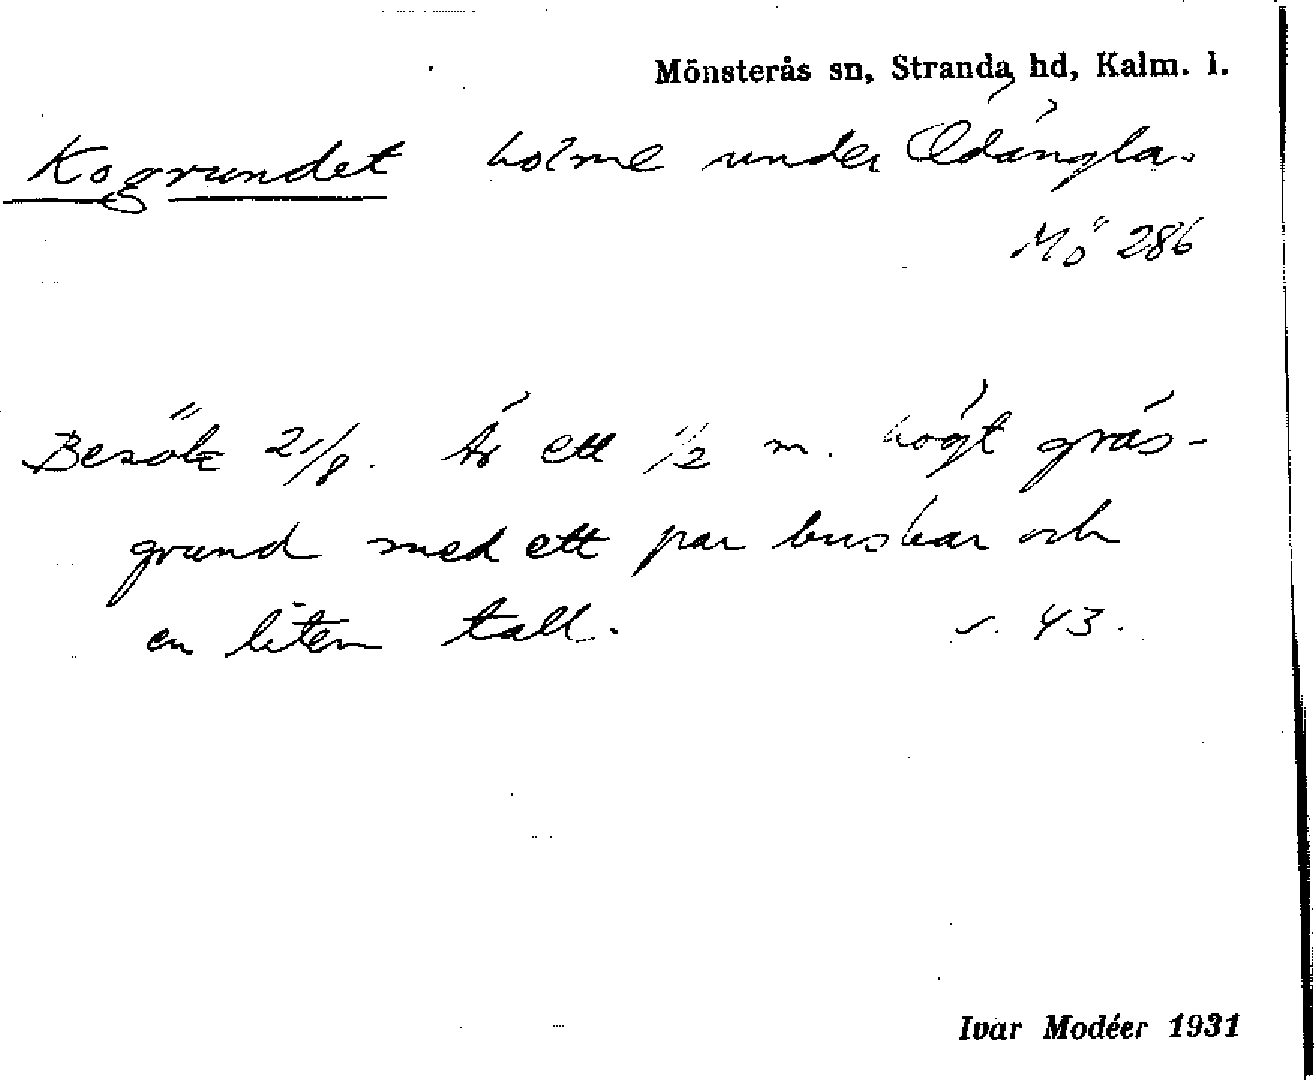 Mönsterås sn, Stranda hd, Kalm. l.
Kogrundet holme under Ödängla.
Mö 286
Besök 21/8. Är ett 1/2 m. högt gräs-
grund med ett par buskar och
en liten tall. s. 43.
Ivar Modéer 1931